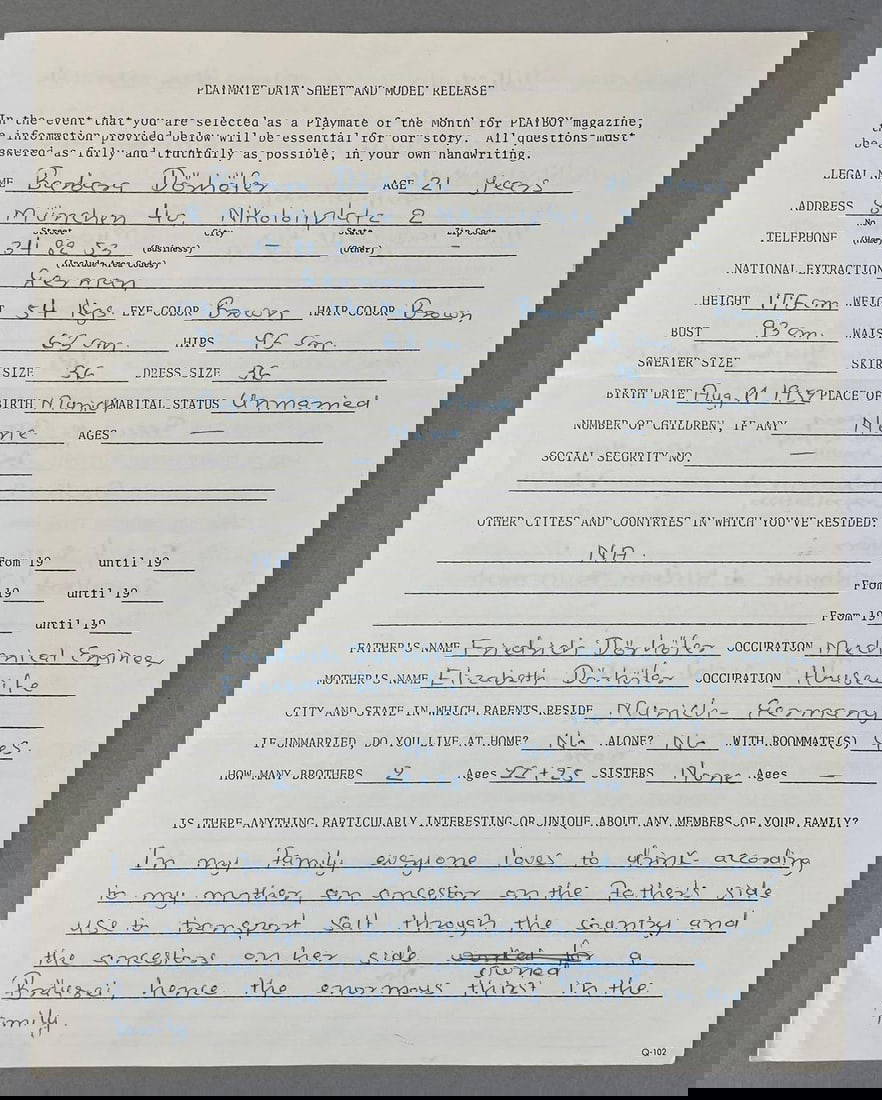 PLAYMATE DATA SHEET AND MODEL RELEASE
In the event that you are selected as a Playmate of the Month for PLAYBOY magazine, the
information provided below will be essential for our story. All questions must be
answered as fully and truthfully as possible, in your own handwriting.
LEGAL N
ME Barbara Dörhöfer AGE 21 years
ADDRESS 8
München 40, Nikolaiplatz 2
No Street City State Zip Code
TELEPHONE
34 82 53 (Business) - (Other) -
(Home)
(Include Area Codes)
NATIONAL EXTRACTION
German
HEIGHT cm WEIG
T 54 kgs. EYE COLOR Brown HAIR COLOR Brown
BUST cm WAIS
cm HIPS cm
SWEATER SIZE SKIR
SIZE 36 DRESS SIZE 36
BIRTH DATE Aug. PLACE OF
BIRTH Munich MARITAL STATUS Unmarried
NUMBER OF CHILDREN, IF ANY No
ne AGES —
SOCIAL SECURITY NO. —
OTHER CITIES AND COUNTRIES IN WHICH YOU'VE RESIDED:
NA From 19 until 19
From 19 until 19
From 19 until 19
FATHER'S NAME Friedrich Dörhöfer OCCUPATION Mecha
nical Engineer
MOTHER'S NAME Elizabeth Dörhöfer OCCUPATION Housew
ife
CITY AND STATE IN WHICH PARENTS RESIDE Munich - Germany
IF UNMARRIED, DO YOU LIVE AT HOME? No ALONE? No WITH ROOMMATE(S) Y
es.
HOW MANY BROTHERS 2 Ages SISTERS None Ages —
IS THERE ANYTHING PARTICULARLY INTERESTING OR UNIQUE ABOUT ANY MEMBERS OF YOUR FAMILY?
In my family everyone loves to drink - according
to my mother, an ancestor on the Father's side
use to transport salt through the country and
the ancestors on her side owned a
hence the enormous thirst in the
family.
Q-102